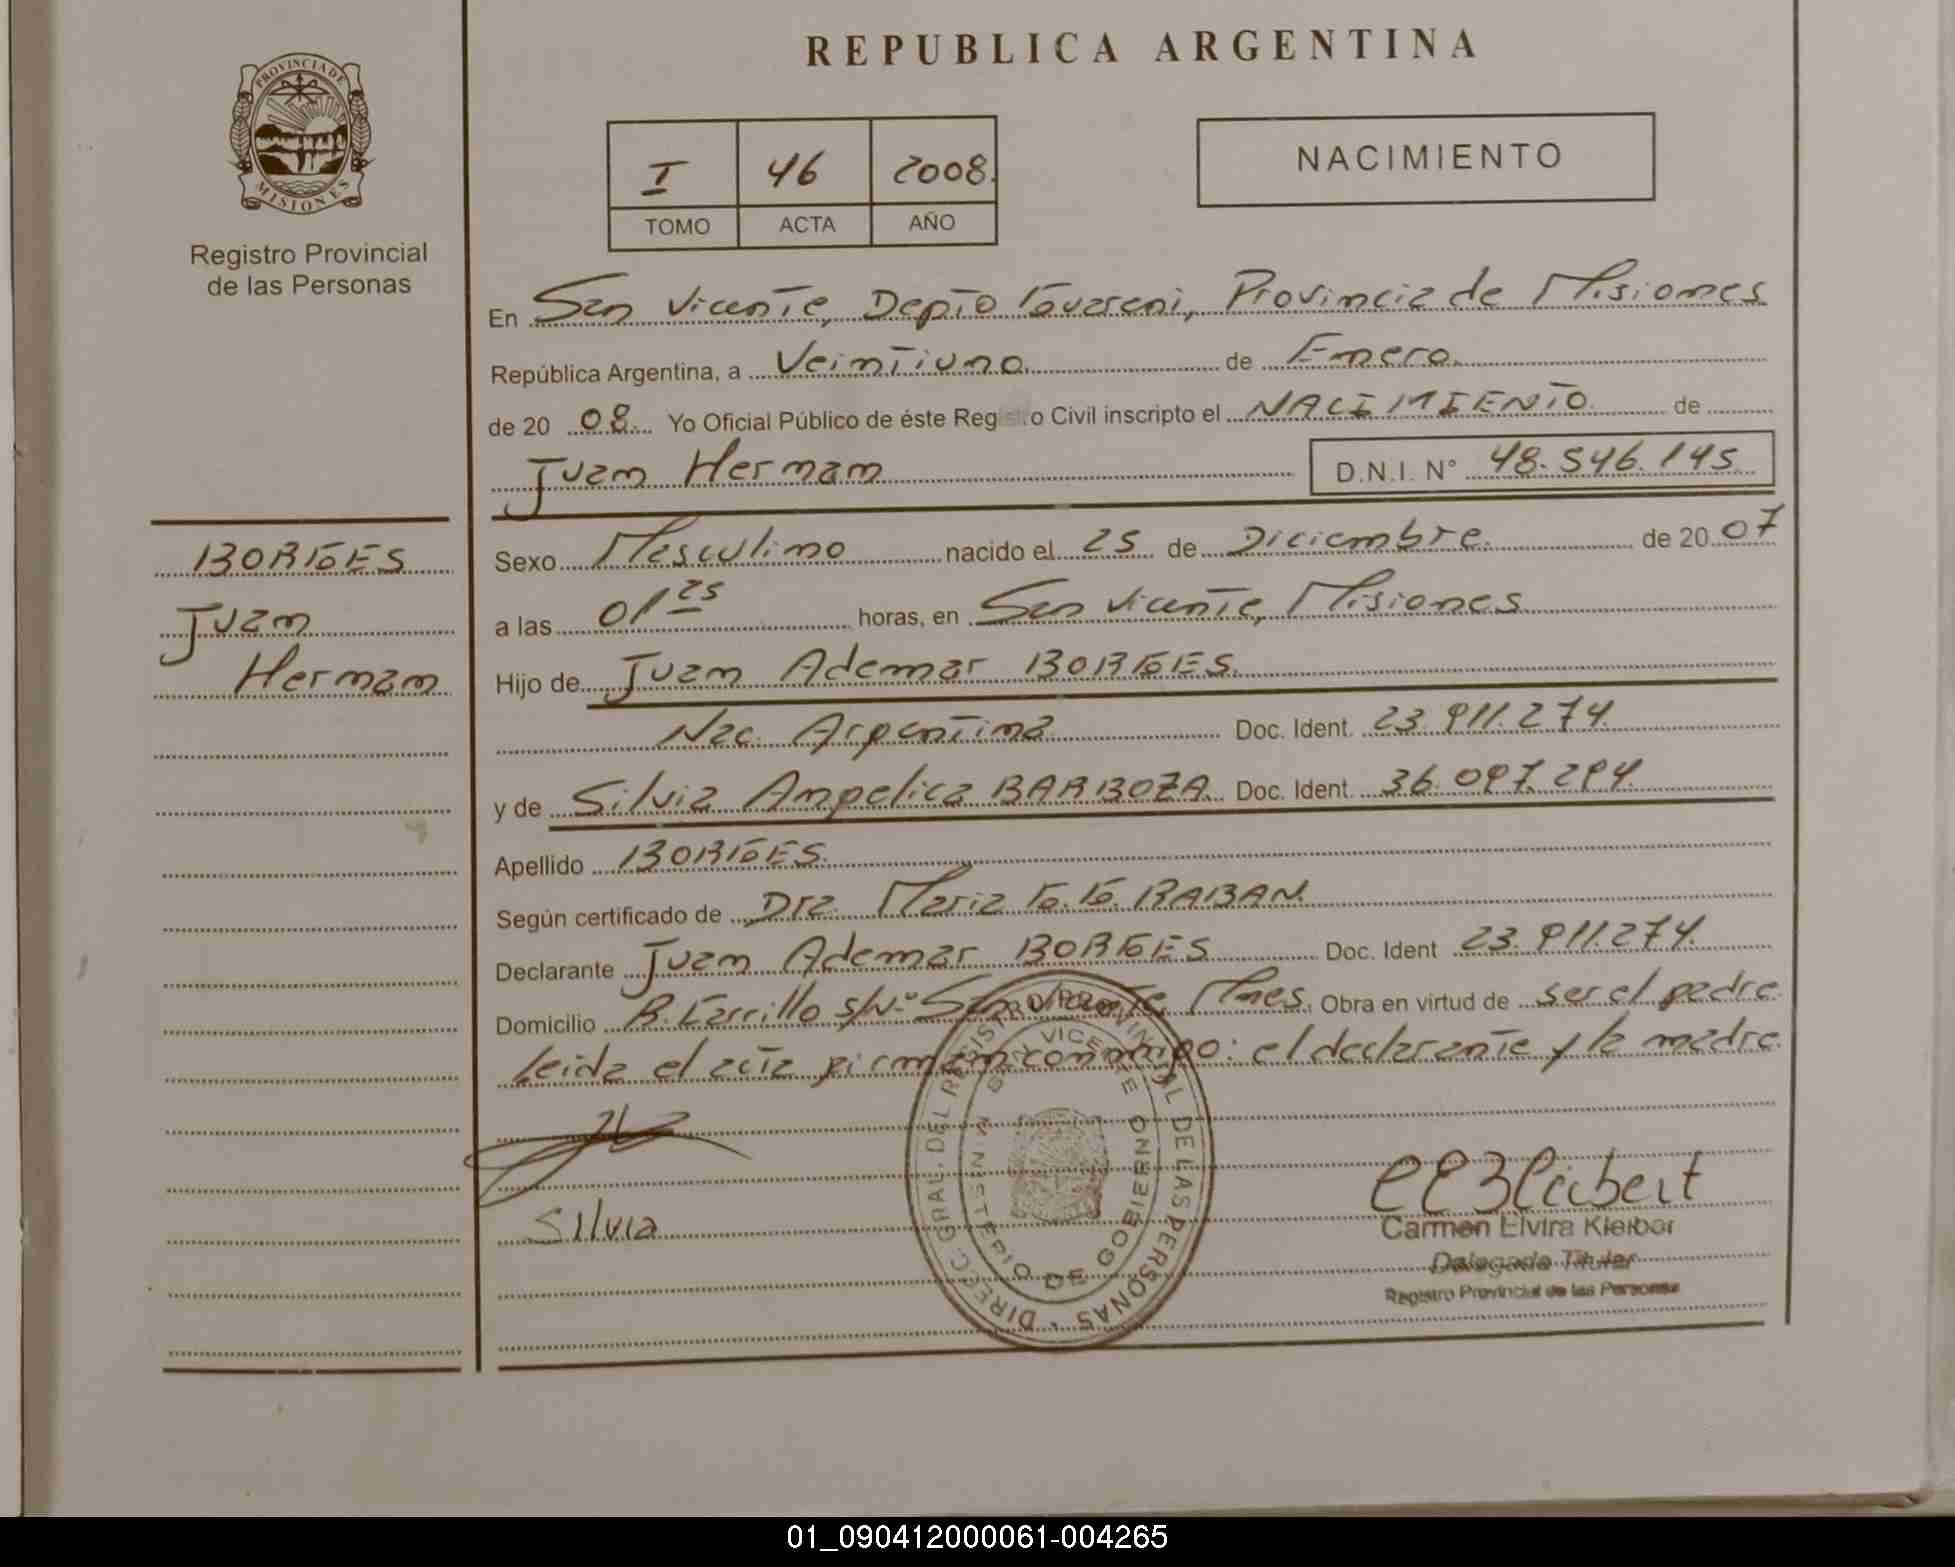 REPUBLICA ARGENTINA
PROVINCIA DE
MISIONES
Registro Provincial
de las Personas
I 46 2008.
TOMO ACTA AÑO
NACIMIENTO
En San Vicente, Depto Guarani, Provincia de Misiones
República Argentina, a Veintiuno de Enero.
de 20 08. Yo Oficial Público de éste Registro Civil inscripto el NACIMIENTO de
Juan Hernan D.N.I. N° 48.546.145
BORGES
Juan
Hernan
Sexo Masculino nacido el 25 de Diciembre. de 20 07
a las 01 25 horas, en San Vicente, Misiones
Hijo de Juan Ademar BORGES.
Nac. Argentina Doc. Ident. 23.911.274.
y de Silvia Angelica BARBOZA Doc. Ident. 36.097.294.
Apellido BORGES.
Según certificado de Dra. Maria G. G. RABAN.
Declarante Juan Ademar BORGES Doc. Ident 23.911.274.
Domicilio B. Carrillo s/Nº San Vicente Mnes. Obra en virtud de ser el padre
Leida el acta firman conmigo: el declarante y la madre
Silvia
DIRECC. GRAL. DEL REGISTRO PROVINCIAL DE LAS PERSONAS
SAN VICENTE
MINISTERIO DE GOBIERNO
Carmen Elvira Kleiber
Delegada Titular
Registro Provincial de las Personas
01_090412000061-004265